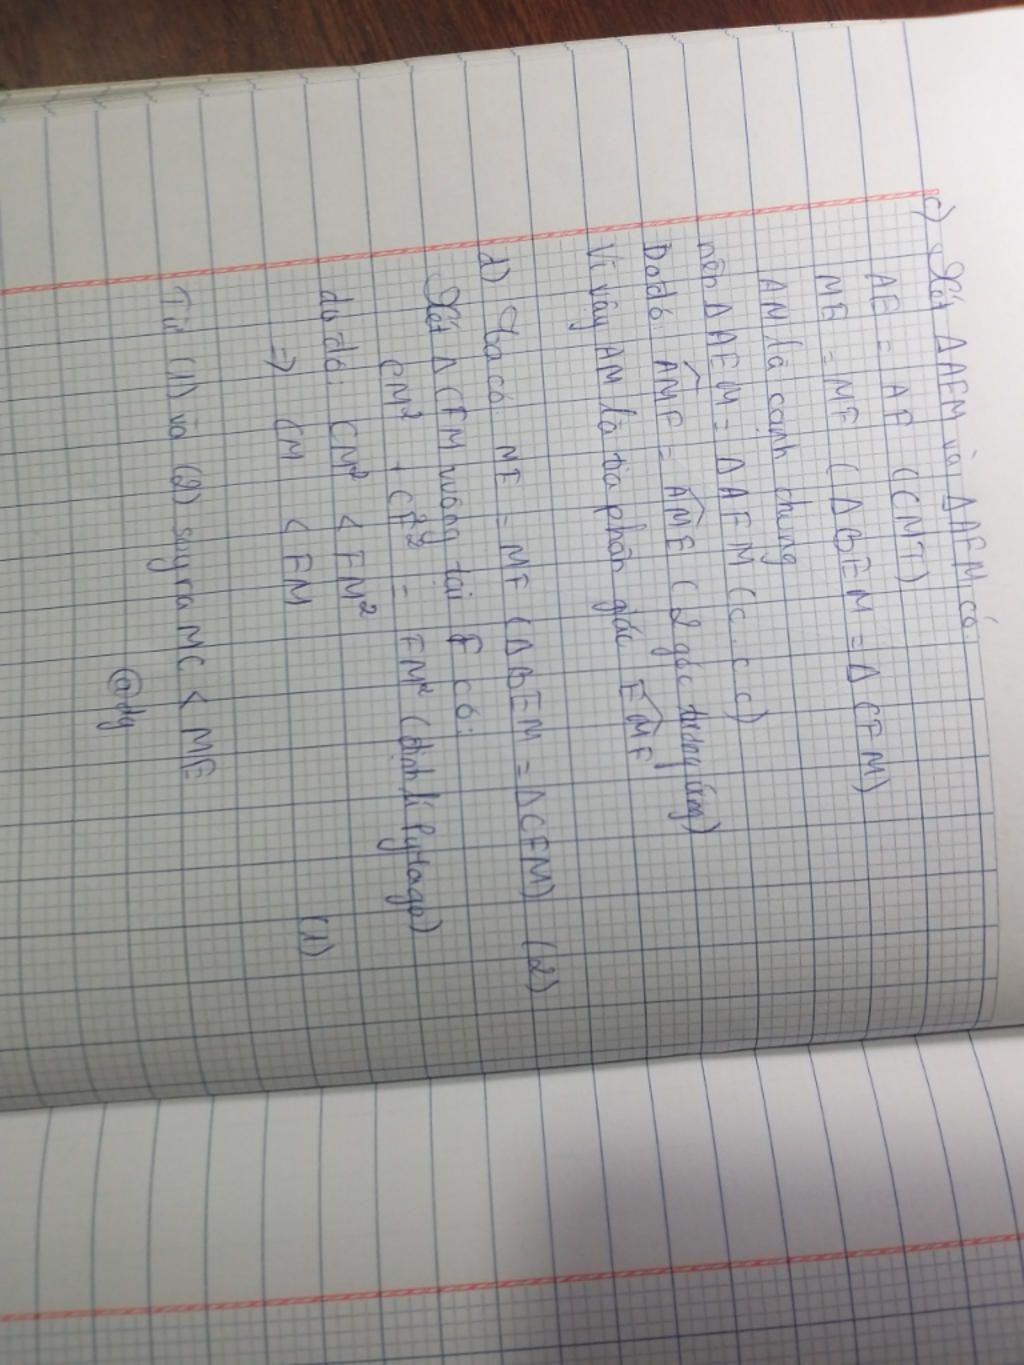 c) Xét ΔAEM và ΔAFM có
AE = AF (CMT)
ME = MF (ΔBEM = ΔCFM)
AM là cạnh chung
nên ΔAEM = ΔAFM (c.c.c)
Do đó ∠AMF = ∠AME (2 góc tương ứng)
Vì vậy AM là tia phân giác ∠EMF
d) Ta có ME = MF (ΔBEM = ΔCFM) (2)
Xét ΔCFM vuông tại F có:
CM² + CF² = FM² (định lí Pytago)
do đó: CM² < FM²
=> CM < FM (1)
Từ (1) và (2) suy ra MC < ME